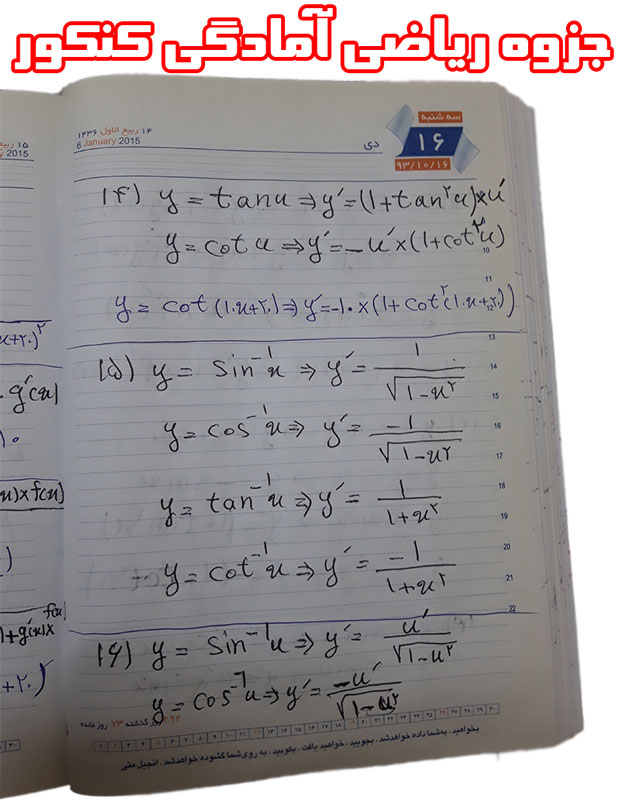 جزوه ریاضی آمادگی کنکور
۱۵ ربیع
y 2015
۱۴ ربیع الاول ۱۴۳۶
6 January 2015
دی
سه شنبه
۱۶
۹۳/۱۰/۱۶
۱۴) y = tan u ⇒ y′ = (1+tan²u)×u′
y = cot u ⇒ y′ = −u′×(1+cot²u)
y = cot(۱۰x+۲۰) ⇒ y′ = −۱۰×(1+cot²(۱۰x+۲۰))
۱۵) y = sin⁻¹x ⇒ y′ = 1/√(1−x²)
y = cos⁻¹x ⇒ y′ = −1/√(1−x²)
y = tan⁻¹x ⇒ y′ = 1/(1+x²)
y = cot⁻¹x ⇒ y′ = −1/(1+x²)
۱۶) y = sin⁻¹u ⇒ y′ = u′/√(1−u²)
y = cos⁻¹u ⇒ y′ = −u′/√(1−u²)
10
11
12
13
14
15
16
17
18
19
20
21
22
x+۲۰)²
. g′(x)
x)×f(x)
1+g′(x)×
f(x)
+۲۰)
۲۹۲ روز گذشته ۷۳ روز مانده
بخواهید، به شما داده خواهد شد، بجویید، خواهید یافت، بکوبید، به روی شما گشوده خواهد شد. انجیل متی